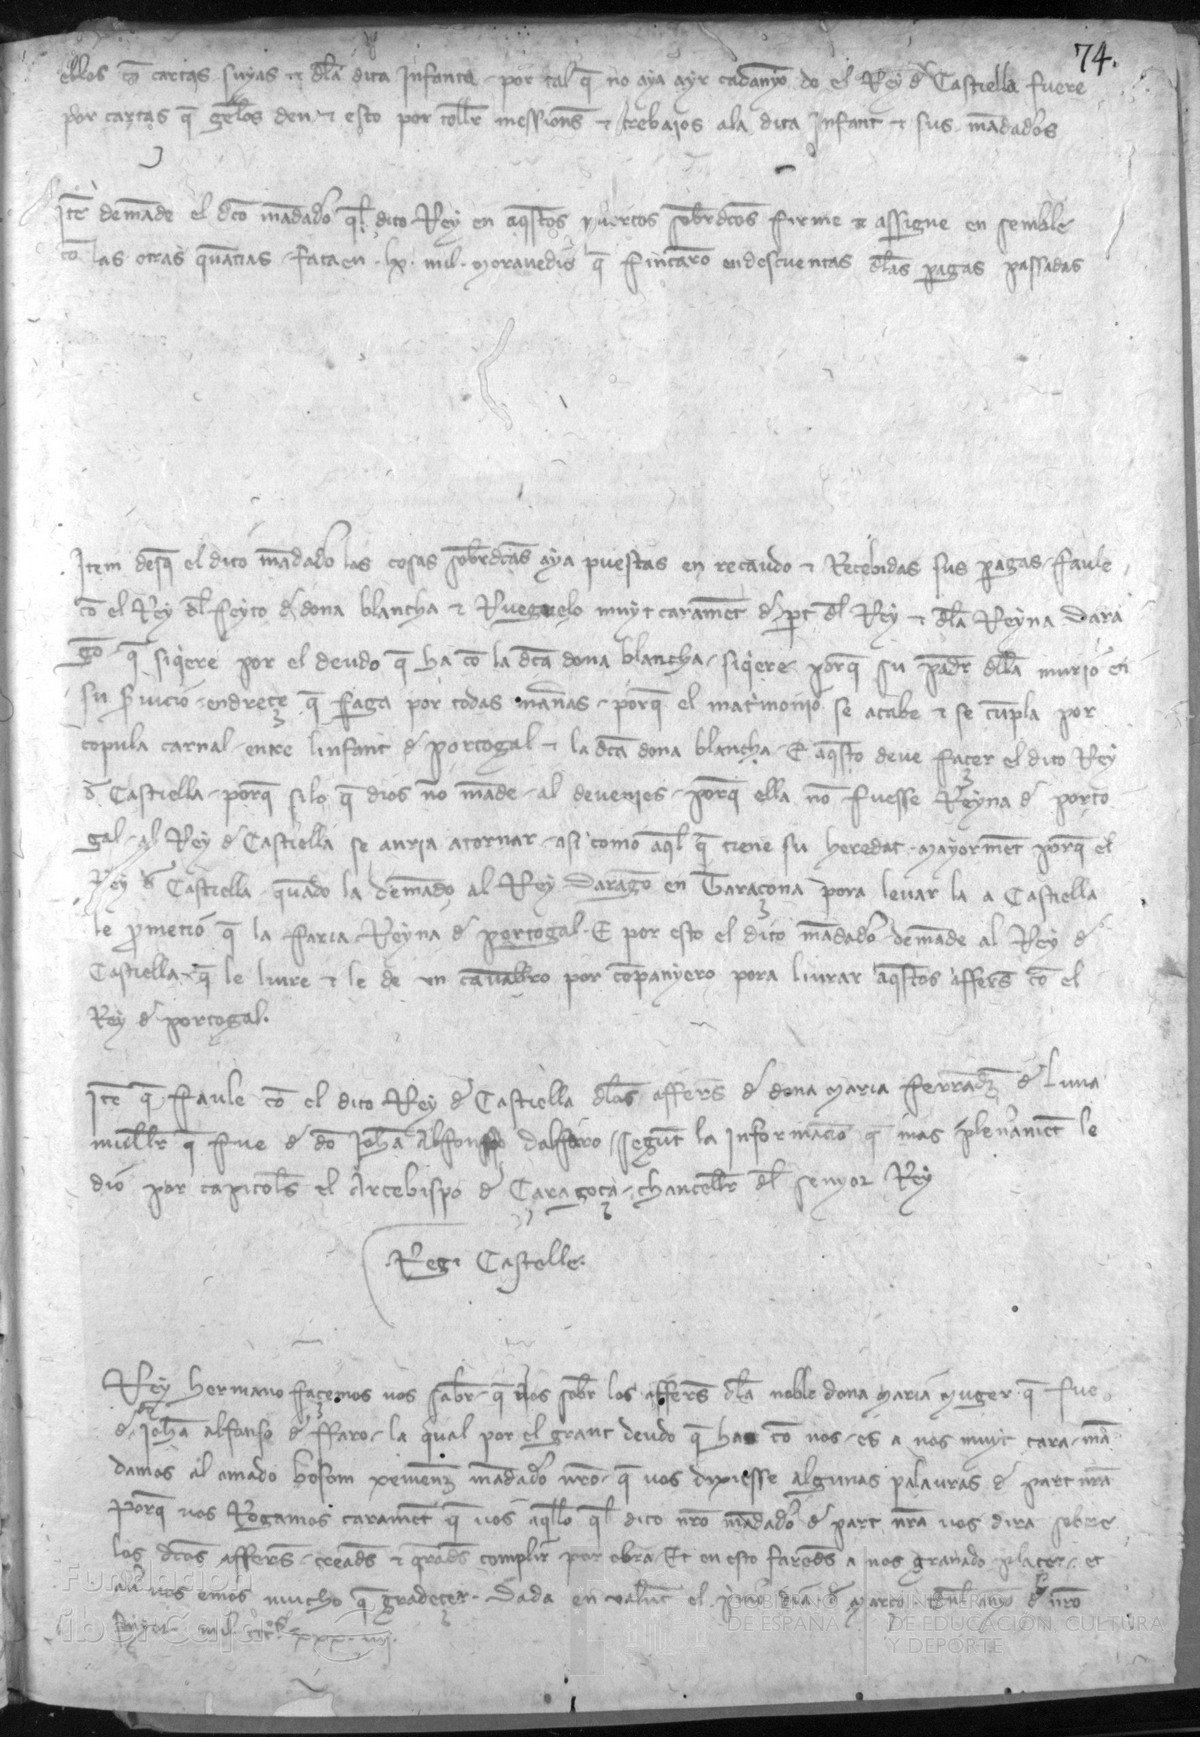 74.
ellos cō cartas suyas ⁊ dla dita Infanta por tal q̄ no aya ayr cadanyo do el Rey d Castiella fuere
por cartas q̄ gelos den ⁊ esto por tollr messions ⁊ trebaios ala dita Infant ⁊ sus mādados
Itē demāde el dco mādado ql dito Rey en aqstos puertos sobrdcos firme ⁊ assigne en semble
cō las otras quātias fata en .lx. mil. morauedis q̄ fincarō en descuentas dlas pagas passadas
Item desq̄ el dito mādado las cosas sobrdcas aya puestas en recaudo ⁊ Recebidas sus pagas faule
cō el Rey dl feyto d dona blancha ⁊ Rueguelo muyt caramēt d pt dl Rey ⁊ dla Reyna Dara
gō q̄ siqere por el deudo q̄ ha cō la dca dona blancha siqere porq̄ su padr dlla murio en
su sruicio endreçe q̄ faga por todas manas porq̄ el matrimonio se acabe ⁊ se cūpla por
copula carnal entre linfant d portogal ⁊ la dca dona blancha E aqsto deue façer el dito Rey
d Castiella porq̄ silo q̄ dios nō māde al deuenies porq̄ ella nō fuesse Reyna d porto
gal al Rey d Castiella se auria atornar asi como aql q̄ tiene su heredat mayormēt porq̄ el
Rey d Castiella quādo la demādo al Rey Daragō en Taraçona pora leuar la a Castiella
le pmetio q̄ la faria Reyna d portogal. E por esto el dito mādado demāde al Rey d
Castiella q̄ le liure ⁊ le de un cauallro por cōpanyero pora liurar aqstos affers cō el
Rey d portogal.
Itē q̄ faule cō el dito Rey d Castiella dlos affers d dona Maria fferrādz d Luna
mullr q̄ fue d dō Johā Alfonso dalfaro segūt la informacio q̄ mas plenamēt le
dio por capitols el Arcebispo d Çaragoça chancellr dl senyor Rey
Regi Castelle.
Rey hermano façemos uos sabr q̄ nos sobr los affers dla noble dona Maria muger q̄ fue
d dō Johā alfonso d ffaro la qual por el grant deudo q̄ ha cō nos es a nos muyt cara mā
damos al amado bosom xemenz mādado nro q̄ uos dixiesse algunas palauras d part nra
Porq̄ uos Rogamos caramēt q̄ uos aqllo ql dito nro mādado d part nra uos dira sobre
los dcos affers creads ⁊ qrads complir por obra Et en esto fareds a nos granado plaçer et
auer uos emos mucho q̄ gradeçer. Dada en valēc el pmo dia d março
Fundación
iberCaja
GOBIERNO DE ESPAÑA
MINISTERIO DE EDUCACIÓN, CULTURA Y DEPORTE